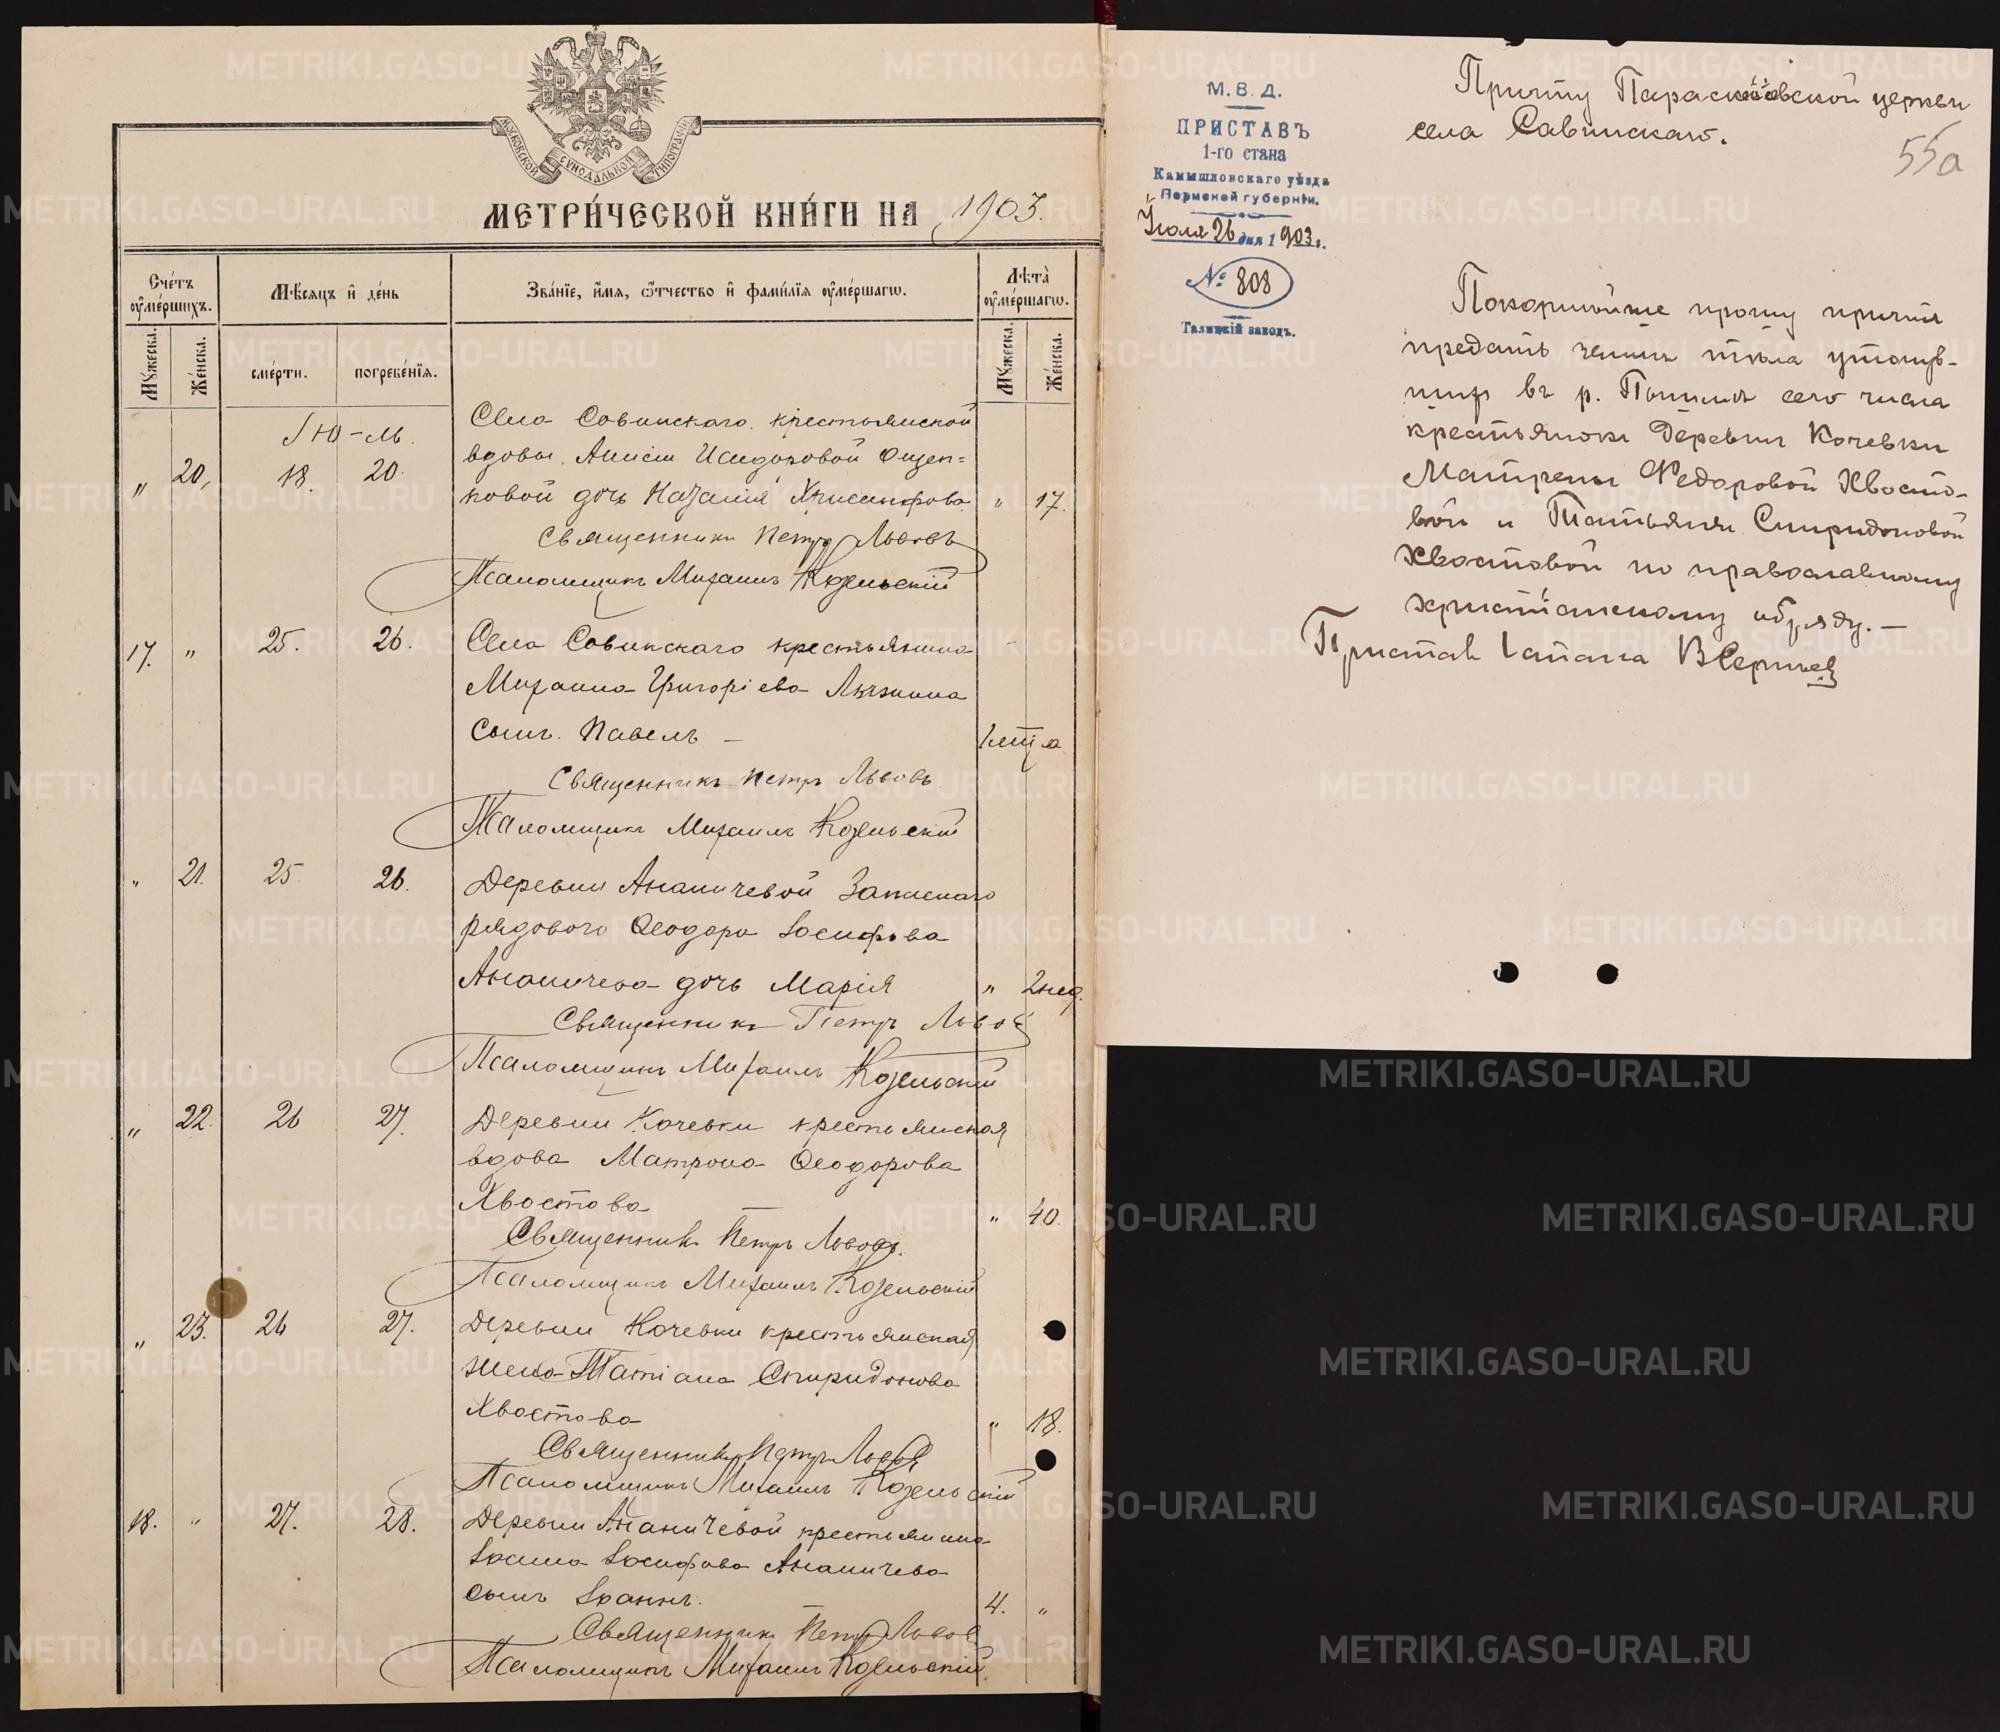 МОСКОВСКОЙ СѴНОДАЛЬНОЙ ТИПОГРАФІИ
МЕТРИ́ЧЕСКОЙ КНИ́ГИ НА 1903.
Сче́тъ ᲂу҆ме́ршихъ.
Мѣ́сяцъ и҆ де́нь
Зва́нїе, и҆́мя, ѻ҆́тчество и҆ фами́лїя ᲂу҆ме́ршагѡ.
Лѣта̀ ᲂу҆ме́ршагѡ.
Мꙋ́жеска.
Же́нска.
сме́рти.
погребе́нїя.
Мꙋ́жеска.
Же́нска.
Іюль.
Села Совинскаго крестьянской
" 20. 18. 20. вдовы Анисіи Исидоровой Ощеп=
ковой дочь Наталія Хрисанфова " 17.
Священникъ Петръ Львовъ
Псаломщикъ Михаилъ Козельскій
17. " 25. 26. Села Совинскаго крестьянина
Михаила Григоріева
сынъ Павелъ –
Священникъ Петръ Львовъ
Псаломщикъ Михаилъ Козельскій
" 21. 25. 26. Деревни Ананичевой Запаснаго
рядового Ѳеодора Іосифова
Ананичева дочь Марія " 2 нед.
Священникъ Петръ Львовъ
Псаломщикъ Михаилъ Козельскій
" 22. 26 27. Деревни Кочевки крестьянская
вдова Матрона Ѳеодорова
Хвостова " 40.
Священникъ Петръ Львовъ.
Псаломщикъ Михаилъ Козельскій
" 23. 26 27. Деревни Кочевки крестьянская
жена Татіана Спиридонова
Хвостова " 18.
Священникъ Петръ Львовъ
Псаломщикъ Михаилъ Козельскій
18. " 27. 28. Деревни Ананичевой крестьянина
Іоанна Іосифова Ананичева
сынъ Іоаннъ. 4. "
Священникъ Петръ Львовъ
Псаломщикъ Михаилъ Козельскій
М. В. Д.
ПРИСТАВЪ
1-го стана
Камышловскаго уѣзда
Пермской губерніи.
Іюля 26 дня 1903 г.
№ 808
Талицкій заводъ.
Причту Параскевіевской церкви
села Савинскаго.
55а
Покорнѣйше прошу причтъ
предать землѣ тѣла утонув-
шихъ въ р. Пышмѣ сего числа
крестьянокъ деревни Кочевки
Матрены Федоровой Хвосто-
вой и Татьяны Спиридоновой
Хвостовой по православному
христіанскому обряду. —
Приставъ 1 стана
METRIKI.GASO-URAL.RU